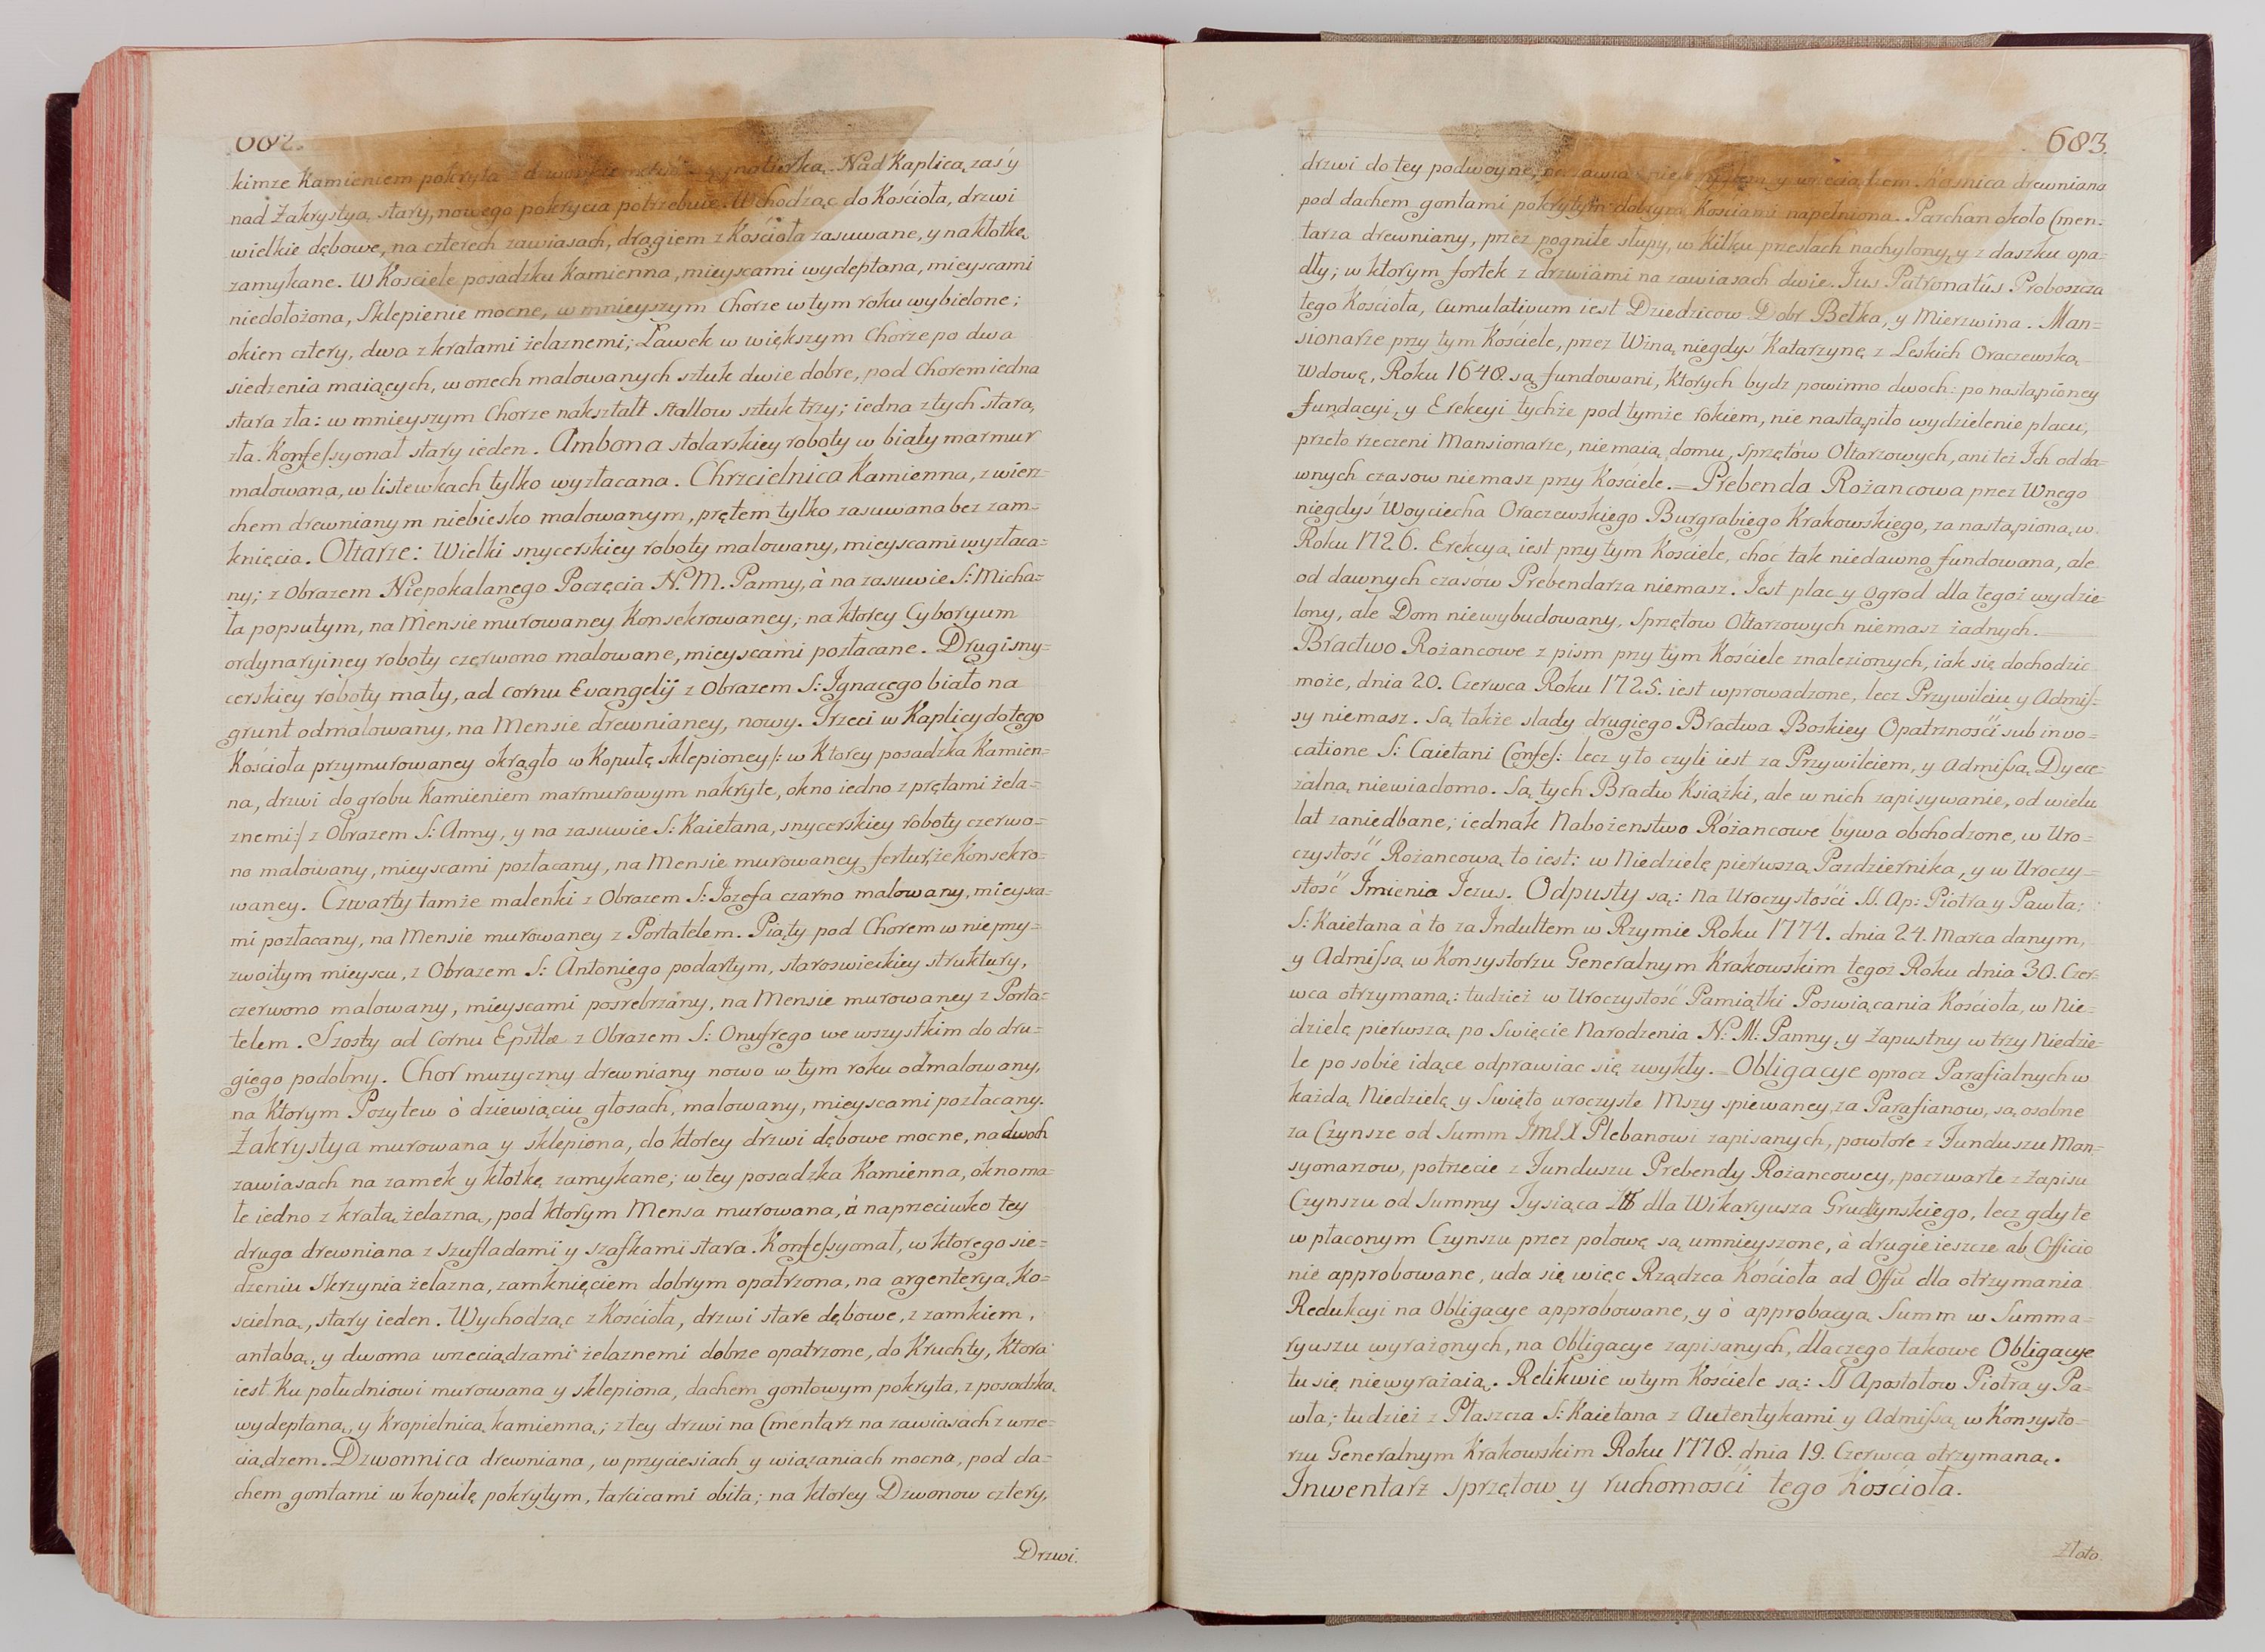 682.
kimże Kamieniem pokryta z d Nad Kaplicą zaś y
nad Zakrystyą stary, nowego pokrycia potrzebuie. Wchodząc do Kościoła, drzwi
wielkie dębowe, na czterech zawiasach, drągiem z Kościoła zasuwane, y na kłotkę
zamykane. W Kosciele posadzka Kamienna, mieyscami wydeptana, mieyscami
niedołożona, Sklepienie mocne, w mnieyszym Chorze w tym roku wybielone;
okien cztery, dwa z kratami żelaznemi; Ławek w większym Chorze po dwa
siedzenia maiących, w orzech malowanych sztuk dwie dobre, pod Chorem iedna
stara zła: w mnieyszym Chorze nakształt Stallow sztuk trzy; iedna z tych stara,
zła. Konfessyonał stary ieden. Ambona stolarskiey roboty w biały marmur
malowana, w listewkach tylko wyzłacana. Chrzcielnica Kamienna, z wierz=
chem drewnianym niebiesko malowanym, prętem tylko zasuwana bez zam=
knięcia. Ołtarze: Wielki snycerskiey roboty malowany, mieyscami wyzłaca=
ny; z Obrazem Niepokalanego Poczęcia N. M. Panny, à na zasuwie S: Micha=
ła popsutym, na Mensie murowaney Konsekrowaney; na ktorey Cyboryum
ordynaryiney roboty czerwono malowane, mieyscami pozłacane. Drugi sny=
cerskiey roboty mały, ad cornu Evangelij z Obrazem S: Ignacego biało na
grunt odmalowany, na Mensie drewnianey, nowy. Trzeci w Kaplicy do tego
Kościoła przymurowaney okrągło w Kopułę sklepioney /: w Ktorey posadzka Kamien=
na, drzwi do grobu Kamieniem marmurowym nakryte, okno iedno z prętami żela=
znemi :/ z Obrazem S: Anny, y na zasuwie S: Kaietana, snycerskiey roboty czerwo=
no malowany, mieyscami pozłacany, na Mensie murowaney Konsekro=
waney. Czwarty tamże malenki z Obrazem S: Jozefa czarno malowany, mieysca=
mi pozłacany, na Mensie murowaney z Portatelem. Piąty pod Chorem w nieprzy=
zwoitym mieyscu, z Obrazem S: Antoniego podartym, staroswieckiey struktury,
czerwono malowany, mieyscami posrebrzány, na Mensie murowaney z Porta=
telem. Szosty ad Cornu Epstlæ z Obrazem S: Onufrego we wszystkim do dru=
giego podobny. Chor muzyczny drewniany nowo w tym roku odmalowany,
na Ktorym Pozytew ò dziewiąciu głosach, malowany, mieyscami pozłacany.
Zakrystya murowana y sklepiona, do ktorey drzwi dębowe mocne, na dwoch
zawiasach na zamek y kłotkę zamykane; w tey posadzka Kamienna, okno ma=
łe iedno z kratą żelazną, pod ktorym Mensa murowana, à naprzeciwko tey
druga drewniana z szufladami y szafkami stara. Konfessyonał, w ktorego sie=
dzeniu Skrzynia żelazna, zamknięciem dobrym opatrzona, na argenteryą Ko=
scielną, stary ieden. Wychodząc z Kościoła, drzwi stare dębowe, z zamkiem,
antabą, y dwoma wrzeciądzami żelaznemi dobrze opatrzone, do Kruchty, Ktora
iest Ku południowi murowana y sklepiona, dachem gontowym pokryta, z posadzką
wydeptaną, y Kropielnicą kamienną; z tey drzwi na Cmentarz na zawiasach z wrze=
ciądzem. Dzwonnica drewniana, w przyciesiach y wiązaniach mocna, pod da=
chem gontami w kopułę pokrytym, tarcicami obita; na ktorey Dzwonow cztery,
Drzwi.
683.
drzwi do tey podwoyne, y wrzeciądzem. Kosnica drewniana
pod dachem gontami pokrytym dobrym Kościami napełniona. Parchan około Cmen=
tarza drewniany, przez pogniłe słupy, w kilku przesłach nachylony, y z daszku opa=
dły; w ktorym fortek z drzwiami na zawiasach dwie. Jus Patronatûs Proboszcza
tego Kościoła, Cumulativum iest Dziedzicow Dobr Bełka, y Mierzwina. Man=
sionarze przy tym Kościele, przez Wzną niegdyś Katarzynę z Leskich Oraczewską
Wdowę, Roku 1648. są fundowani, ktorych bydz powinno dwoch: po nastąpioney
fundacyi, y Erekcyi tychże pod tymże rokiem, nie nastąpiło wydzielenie placu,
przeto rzeczeni Mansionarze, nie maią domu, Sprzętów Ołtarzowych, ani też Ich od da=
wnych czasow niemasz przy Kościele. = Prebenda Rożancowa przez Wnego
niegdyś Woyciecha Oraczewskiego Burgrabiego Krakowskiego, za nastąpioną w
Roku 1726. Erekcyą iest przy tym Kosciele, choć tak niedawno fundowana, ale
od dawnych czasów Prebendarza niemasz. Jest plac y ogrod dla tegoż wydzie=
lony, ale Dom niewybudowany, Sprzętow Ołtarzowych niemasz żadnych.
Bractwo Rożancowe z pism przy tym Kościele znalezionych, iak się dochodzić
może, dnia 20. Czerwca Roku 1725. iest wprowadzone, lecz Przywileiu y Admis=
sy niemasz. Są także slady drugiego Bractwa Boskiey Opatrznośći sub invo=
catione S: Caietani Confes: lecz y to czyli iest za Przywileiem, y Admissą Dyece=
zalną niewiadomo. Są tych Bractw Książki, ale w nich zapisywanie, od wielu
lat zaniedbane; iednak Nabożenstwo Różancowe bywa obchodzone, w Uro=
czystość Rożancową to iest: w Niedzielę pierwszą Pazdziernika, y w Uroczy=
stość Jmienia Jezus. Odpusty są: na Uroczystośći SS. Ap: Piotra y Pawła;
S: Kaietana à to za Jndultem w Rzymie Roku 1774. dnia 24. Marca danym,
y Admissą w Konsystorzu Generalnym Krakowskim tegoż Roku dnia 30. Czer=
wca otrzymaną: tudzież w Uroczystość Pamiątki Poswiącania Kościoła, w Nie=
dzielę pierwszą po Swięcie Narodzenia N: M: Panny, y Zapustny w trzy Niedzie=
le po sobie idące odprawiać się zwykły. = Obligacye oprocz Parafialnych w
każdą Niedzielę y Swięto uroczyste Mszy spiewaney za Parafianow, są osobne
za Czynsze od Summ JmłX Plebanowi zapisanych, powtore z Funduszu Man=
syonarzow, potrzecie z Funduszu Prebendy Rożancowey, poczwarte z Zapisu
Czynszu od Summy Tysiąca dla Wikaryusza Grudzynskiego, lecz gdy te
w płaconym Czynszu przez połowę są umnieyszone, à drugie ieszcze ab Officio
nie approbowane, uda się więc Rządzca Kościoła ad Offm dla otrzymania
Redukcyi na Obligacye approbowane, y ò approbacyą Summ w Summa=
ryuszu wyrażonych, na Obligacye zapisanych, dlaczego takowe Obligacye
tu się niewyrażaią. Relikwie w tym Kościele są: SS Apostołow Piotra y Pa=
wła; tudzież z Płaszcza S: Kaietana z Autentykami y Admissą w Konsysto=
rzu Generalnym Krakowskim Roku 1778. dnia 19. Czerwca otrzymaną.
Jnwentarz Sprzętow y ruchomośći tego Kościoła.
Złoto.